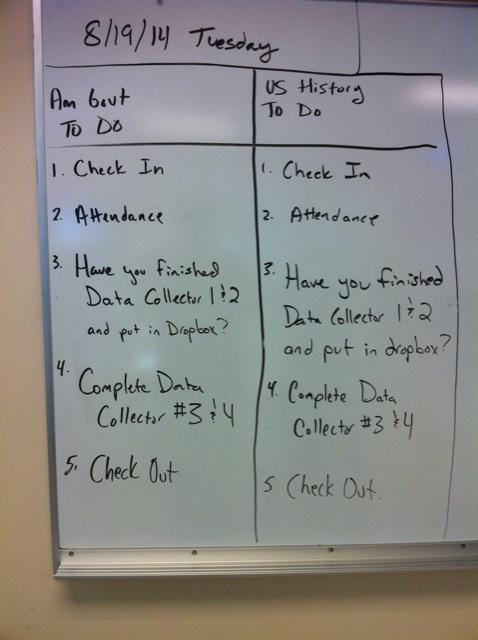 8/19/14 Tuesday
Am Govt
To Do
1. Check In
2. Attendance
3. Have you finished
Data Collector 1 & 2
and put in Dropbox?
4. Complete Data
Collector #3 & 4
5. Check Out
US History
To Do
1. Check In
2. Attendance
3. Have you finished
Data Collector 1 & 2
and put in dropbox?
4. Complete Data
Collector #3 & 4
5 Check Out.